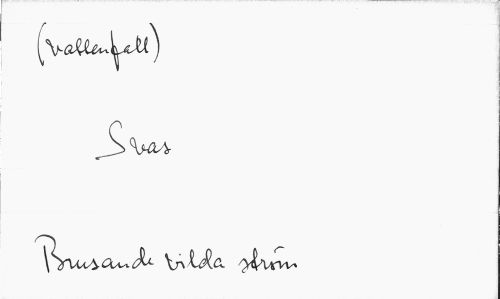 (Vattenfall)
Svas
Brusande vilda ström